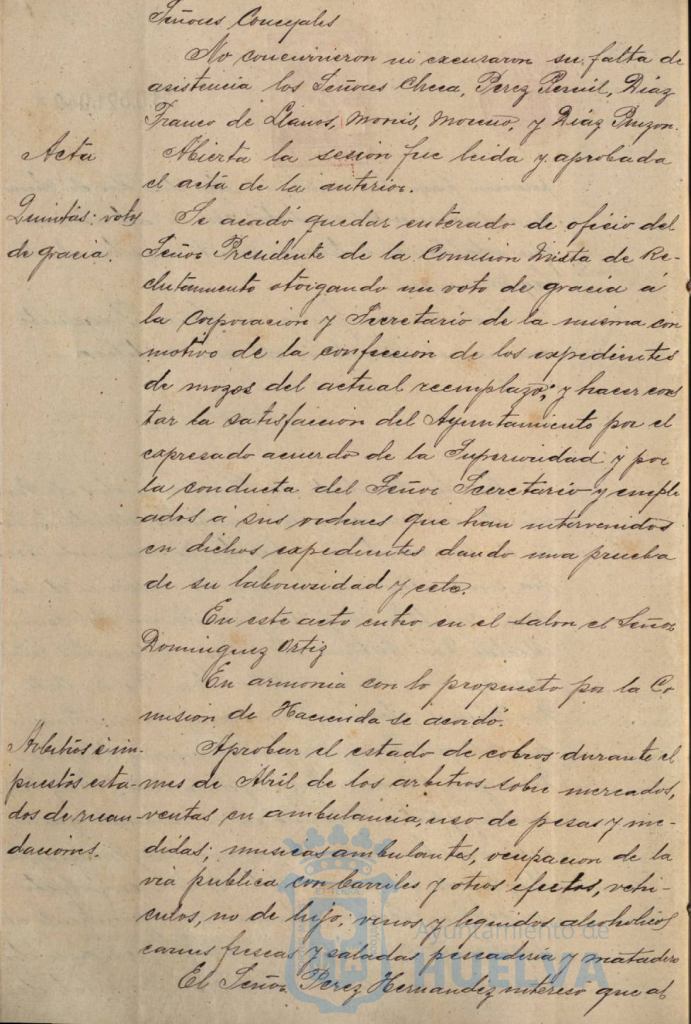 Señores Concejales
No concurrieron ni excusaron su falta de
asistencia los Señores Checa, Perez Pernil, Diaz
Franco de Llanos, Monis, Moreno, y Diaz Pinzon.
Acta
Abierta la sesion fue leida y aprobada
el acta de la anterior.
Quintas: voto
de gracia.
Se acordó quedar enterado de oficio del
Señor Presidente de la Comision Mixta de Re-
clutamiento otorgando un voto de gracia á
la Corporacion y Secretario de la misma con
motivo de la confeccion de los expedientes
de mozos del actual reemplazo, y hacer cons
tar la satisfaccion del Ayuntamiento por el
expresado acuerdo de la Superioridad y por
la conducta del Señor Secretario y emple
-ados á sus ordenes que han intervenido
en dichos expedientes dando una prueba
de su laboriosidad y celo.
En este acto entro en el salon el Señor
Dominguez Ortiz
En armonia con lo propuesto por la Co
mision de Hacienda se acordó.
Arbitrios é im-
puestos esta-
dos de recau-
daciones.
Aprobar el estado de cobros durante el
mes de Abril de los arbitrios sobre mercados,
ventas en ambulancia, uso de pesas y me-
didas; musicas ambulantes, ocupacion de la
via publica con barriles y otros efectos, vehi-
culos, no de lujo; vinos y liquidos alcoholicos
carnes frescas y saladas pescaderia y matadero
El Señor Perez Hernandez intereso que al
Ayuntamiento de
HUELVA